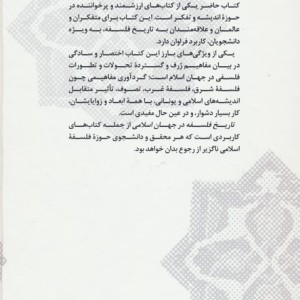 کتاب حاضر یکی از کتاب‌های ارزشمند و پرخواننده در
حوزهٔ اندیشه و تفکر است. این کتاب برای متفکران و
عالمان و علاقه‌مندان به تاریخ فلسفه، به ویژه
دانشجویان، کاربرد فراوان دارد.
یکی از ویژگی‌های بارز این کتاب اختصار و سادگی
در بیان مفاهیم ژرف و گستردهٔ تحولات و تطورات
فلسفی در جهان اسلام است: گردآوری مفاهیمی چون
فلسفهٔ شرق، فلسفهٔ غرب، تصوف، تأثیر متقابل
اندیشه‌های اسلامی و یونانی، با همهٔ ابعاد و زوایایشان،
کاری بسیار دشوار، و در عین حال مفیدی است.
تاریخ فلسفه در جهان اسلامی از جمله کتاب‌های
کاربردی است که هر محقق و دانشجوی حوزهٔ فلسفهٔ
اسلامی ناگزیر از رجوع بدان خواهد بود.